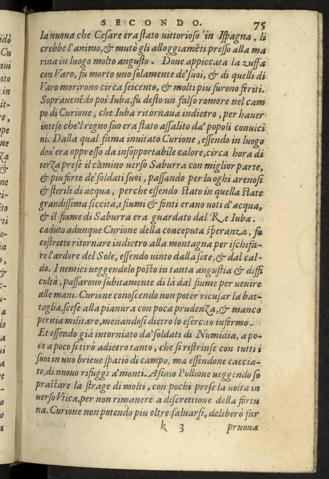 SECONDO. 75
la nuoua che Cesare era stato uittorioso in Ispagna, li
crebbe l'animo, & mutò gli alloggiamẽti presso alla ma
rina in luogo molto angusto. Doue appiccata la zuffa
con Varo, fu morto uno solamente de' suoi, & di quelli di
Varo morirono circa seicento, & molti piu furono feriti.
Soprauenẽdo poi Iuba, fu desto un falso romore nel cam
po di Curione, che Iuba ritornaua indietro, per hauer
inteso che'l regno suo era stato assalito da' popoli conuici
ni. Dalla qual fama inuitato Curione, essendo in luogo
dou' era oppresso da insopportabile calore, circa hora di
terza prese il camino uerso Saburra con miglior parte,
& piu forte de' soldati suoi, passando per luoghi arenosi
& sterili di acqua, perche essendo stato in quella state
grandissima siccità, i fiumi & fonti erano uoti d'acqua,
& il fiume di Saburra era guardato dal Re Iuba.
caduto adunque Curione della conceputa speranza, fu
costretto ritornare indietro alla montagna per ischifa-
re l'ardore del Sole, essendo uinto dalla sete, & dal cal-
do. I nemici ueggendolo posto in tanta angustia & diffi
cultà, passarono subitamente di là dal fiume per uenire
alle mani. Curione conoscendo non poter ricusar la bat-
taglia, scese alla pianura con poca prudenza, & manco
peritia militare, menandosi dietro lo esercito infermo.
Et essendo già intorniato da' soldati di Numidia, a po-
co a poco si tirò adietro tanto, che si ristrinse con tutti i
suoi in uno brieue spatio di campo, ma essendone caccia-
to, di nuouo rifuggì a' monti. Asinio Pollione ueggendo so
prastare la strage di molti, con pochi prese la uolta in
uerso Vtica, per non rimanere a discrettione della fortu
na. Curione non potendo piu oltre saluarsi, deliberò far
k 3 pruoua